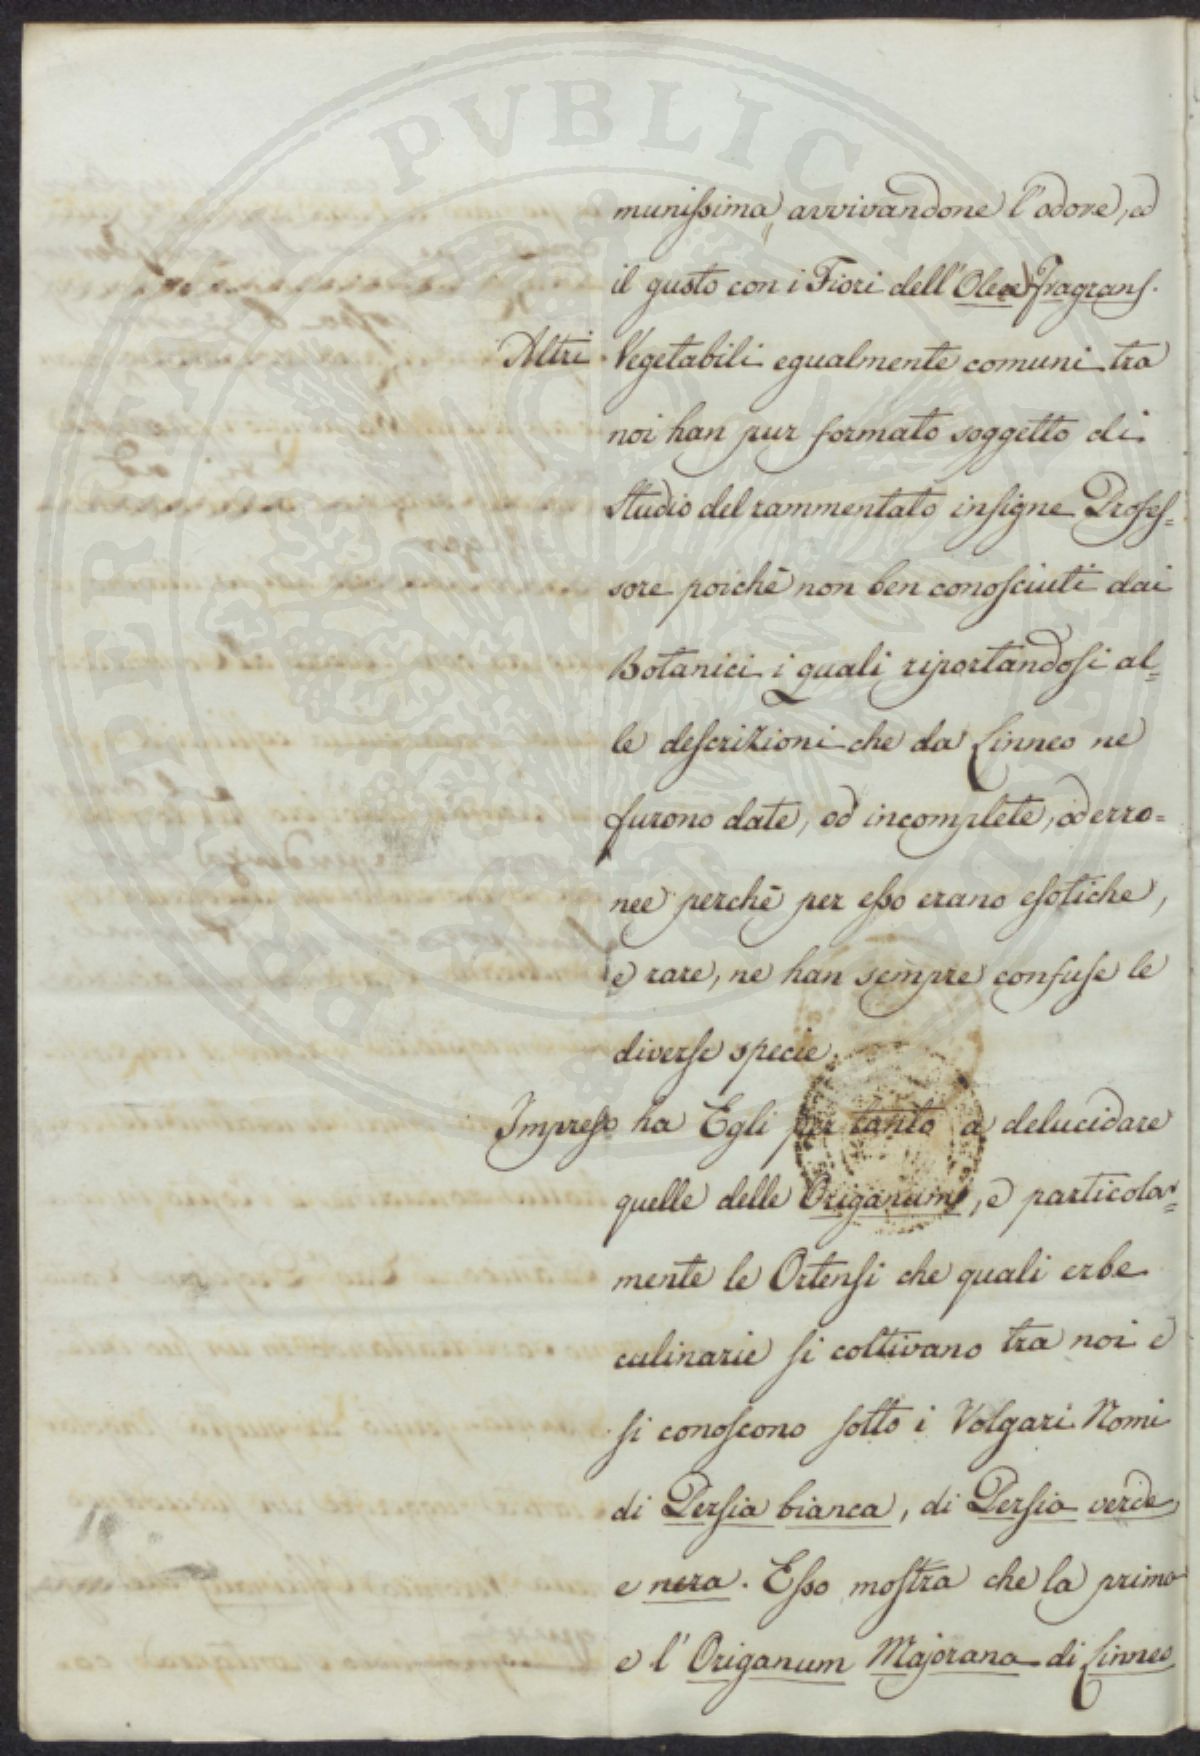 PERPETUI PUBLIC
munissima, avvivandone l'odore, ed
il gusto con i Fiori dell'Olea Fragrans.
Altri Vegetabili egualmente comuni tra
noi han pur formato soggetto di
Studio del rammentato insigne Profes=
sore poichè non ben conosciuti dai
Botanici i quali riportandosi al=
le descrizioni che da Linneo ne
furono date, od incomplete, od erro=
nee perchè per esso erano esotiche,
e rare, ne han sempre confuse le
diverse specie.
Impreso ha Egli per tanto a delucidare
quelle delle Origanum, e particolar=
mente le Ortensi che quali erbe
culinarie si coltivano tra noi e
si conoscono sotto i Volgari Nomi
di Persia bianca, di Persia verde
e nera. Esso mostra che la prima
e l'Origanum Majorana di Linneo